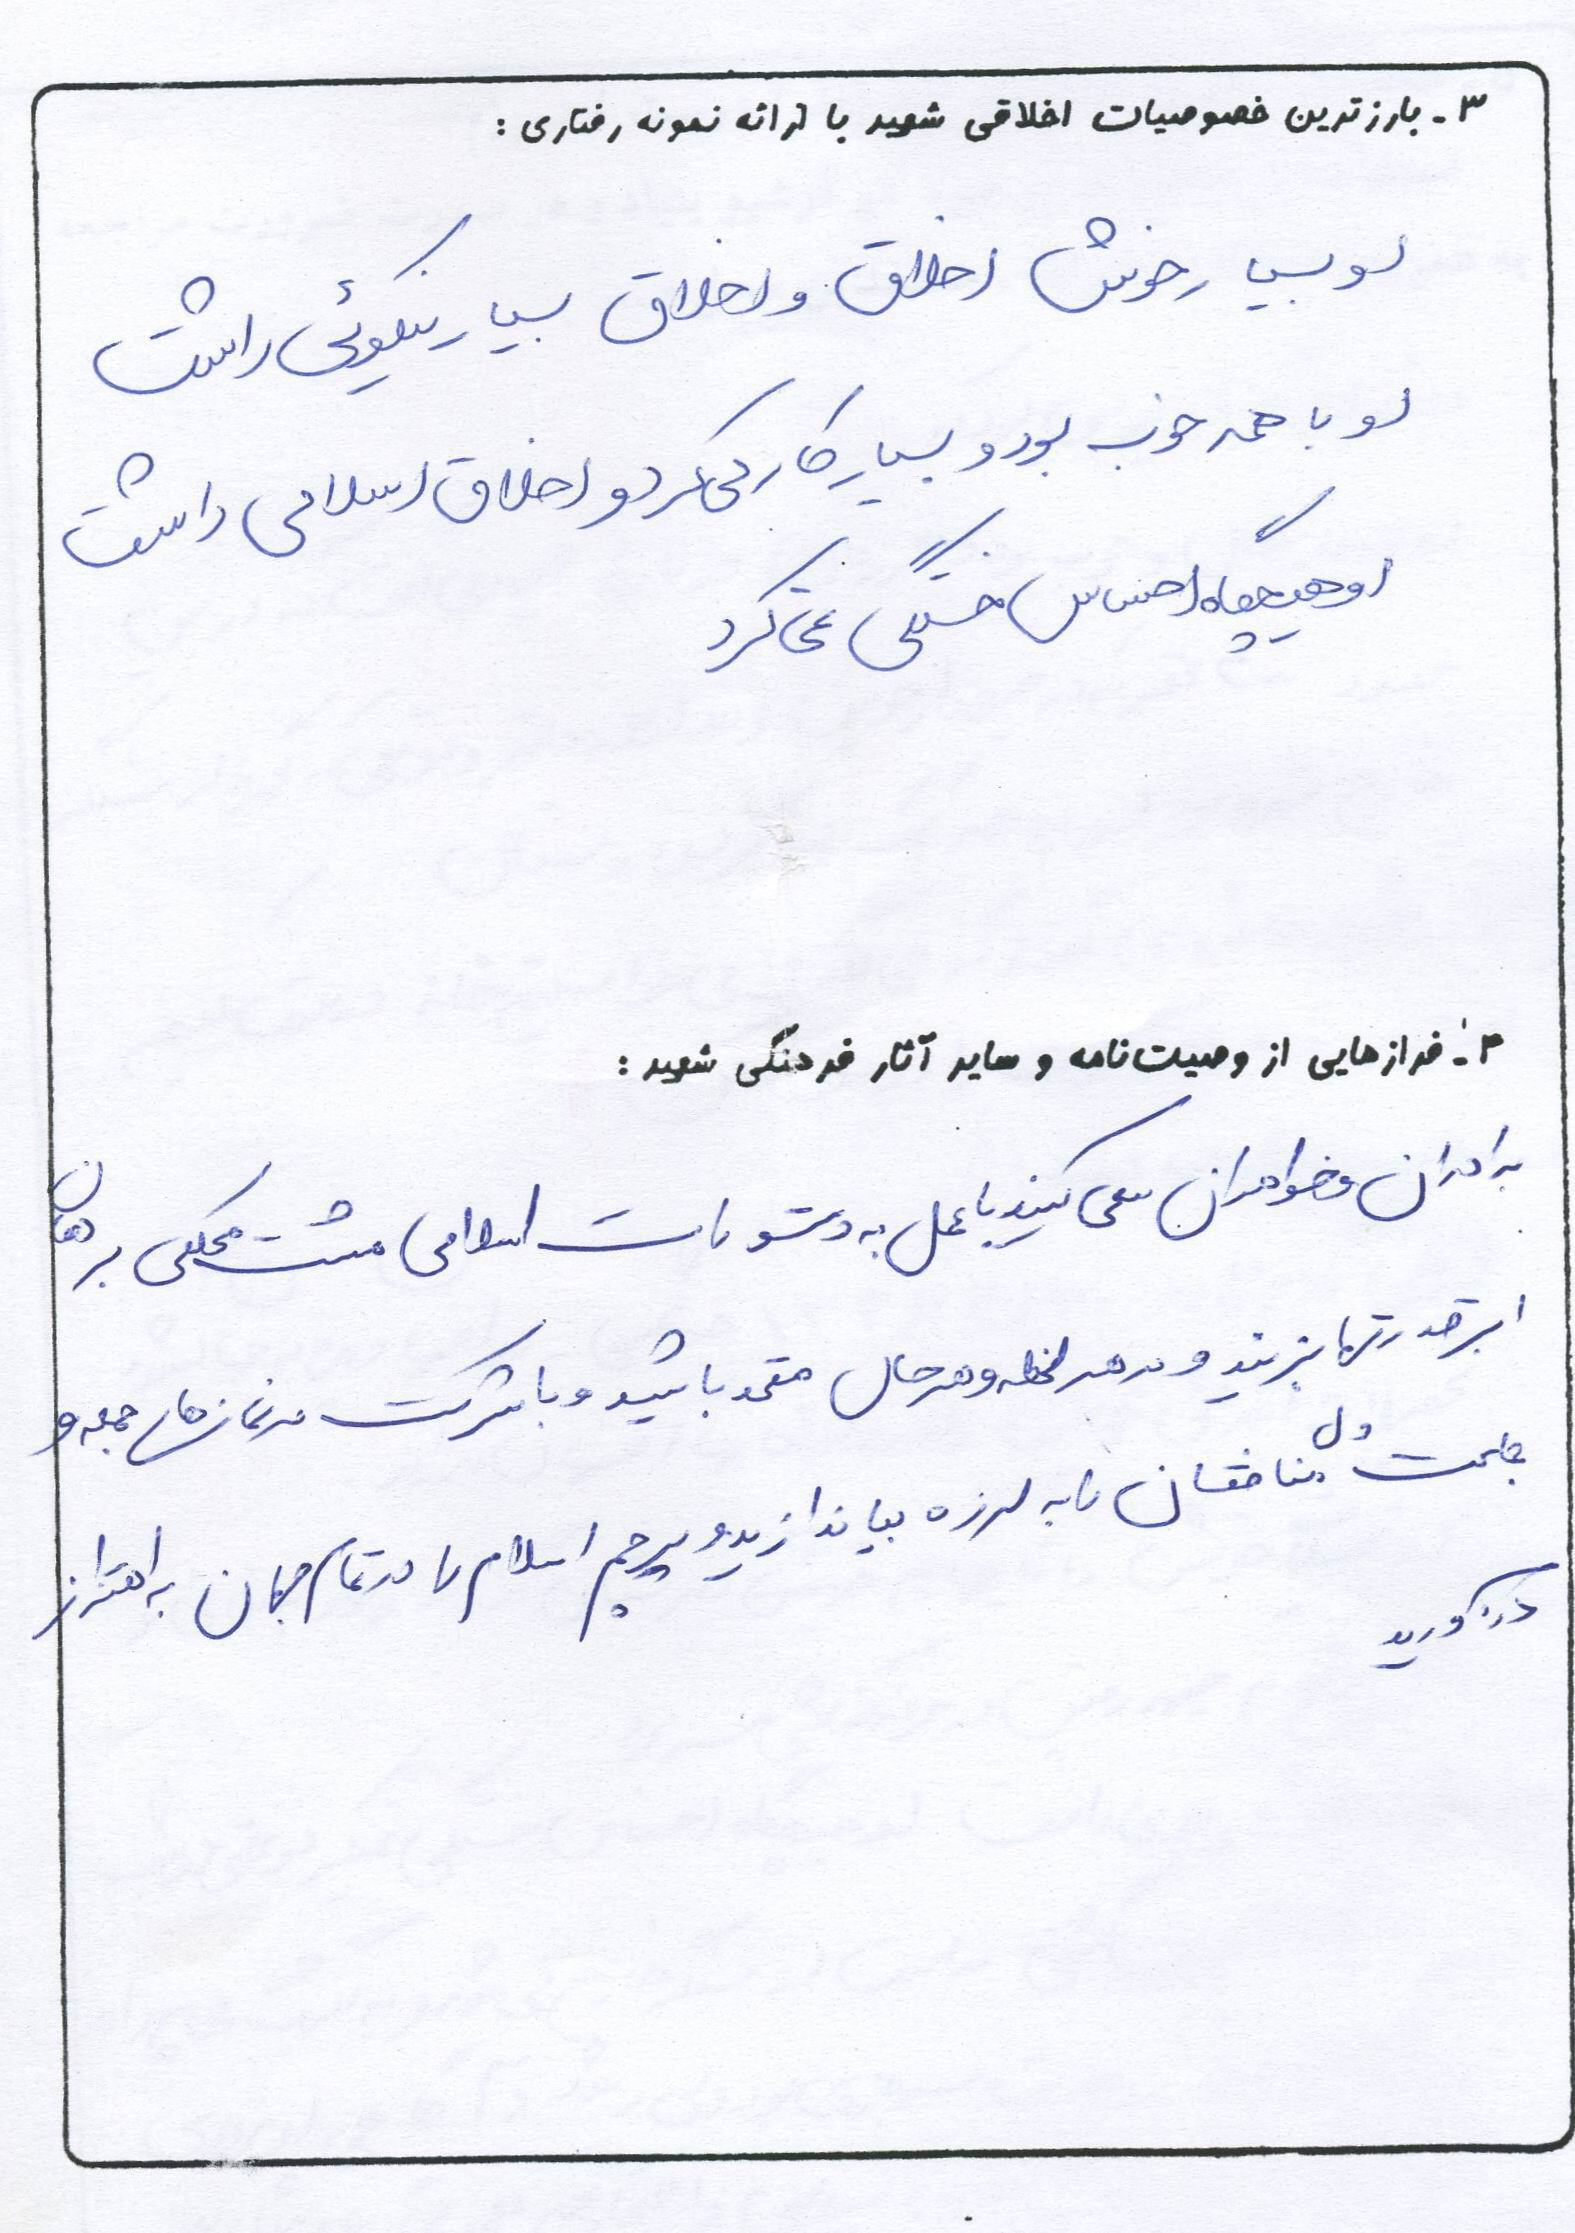 ۳ـ بارزترین خصوصیات اخلاقی شهید با ارائه نمونه رفتاری :
او بسیار خوش اخلاق و اخلاق بسیار نیکوئی داشت
او با همه خوب بود و بسیار کار می کرد و اخلاق اسلامی داشت
او هیچگاه احساس خستگی نمی کرد
۴ـ فرازهایی از وصیت‌نامه و سایر آثار فرهنگی شهید :
برادران و خواهران سعی کنید با عمل به دستورات اسلامی مشت محکمی بر دهان
ابرقدرتها بزنید و در هر لحظه و هر حال متحد باشید و با شرکت در نمازهای جمعه و
جماعت دل منافقان را به لرزه بیاندازید و پرچم اسلام را در تمام جهان به اهتزاز
درآورید